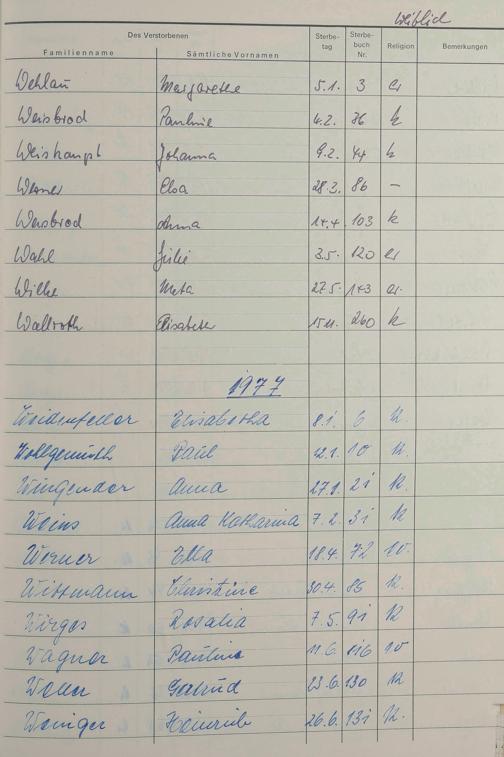 weiblich
Des Verstorbenen Sterbe- tag Sterbe- buch Nr. Religion Bemerkungen
Familienname Sämtliche Vornamen
Wehlau Margarethe 5.1. 3 ev
Weisbrod Pauline 4.2. 36 k
Weishaupt Johanna 9.2. 44 k
Werner Elsa 28.3. 86 –
Weisbrod Anna 14.4 103 k
Wahl Julie 3.5. 120 ev
Wilke Meta 27.5. 143 ev.
Wallroth Elisabeth 15.11. 260 k
1977
Weidenfeller Elisabetha 8.1. 6 k.
Wohlgemuth Paul 12.1. 10 k.
Wingender Anna 27.1. 21 k.
Weins Anna Katharina 7.2. 31 k
Werner Ella 18.4. 72 ev.
Wittmann Christine 30.4. 85 k.
Wirges Rosalia 7.5. 91 k
Wagner Pauline 11.6. 116 ev
Weller Gertrud 23.6. 130 k
Weniger Heinrich 26.6. 131 k.